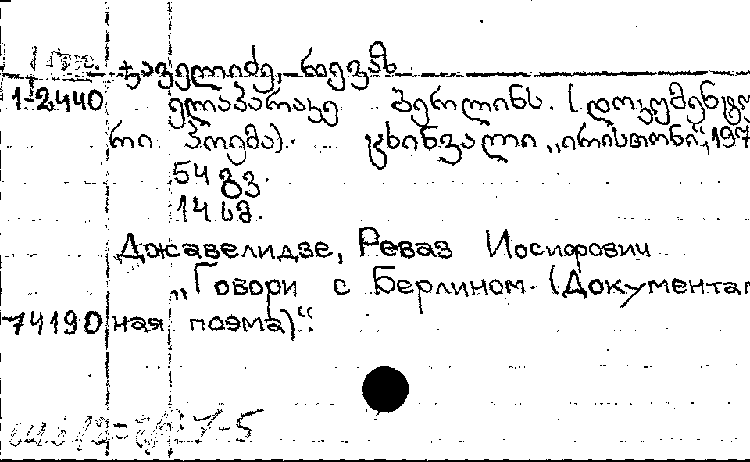 ჯაველიძე, რევაზ
1-2440 ელაპარაკე ბერლინს. (დოკუმენტუ
რი პოემა). ცხინვალი „ირისთონი“, 197
54 გვ.
14 სმ.
Джавелидзе, Реваз Иосифович
„Говори с Берлином. (Документаль
74190 ная поэма)“.